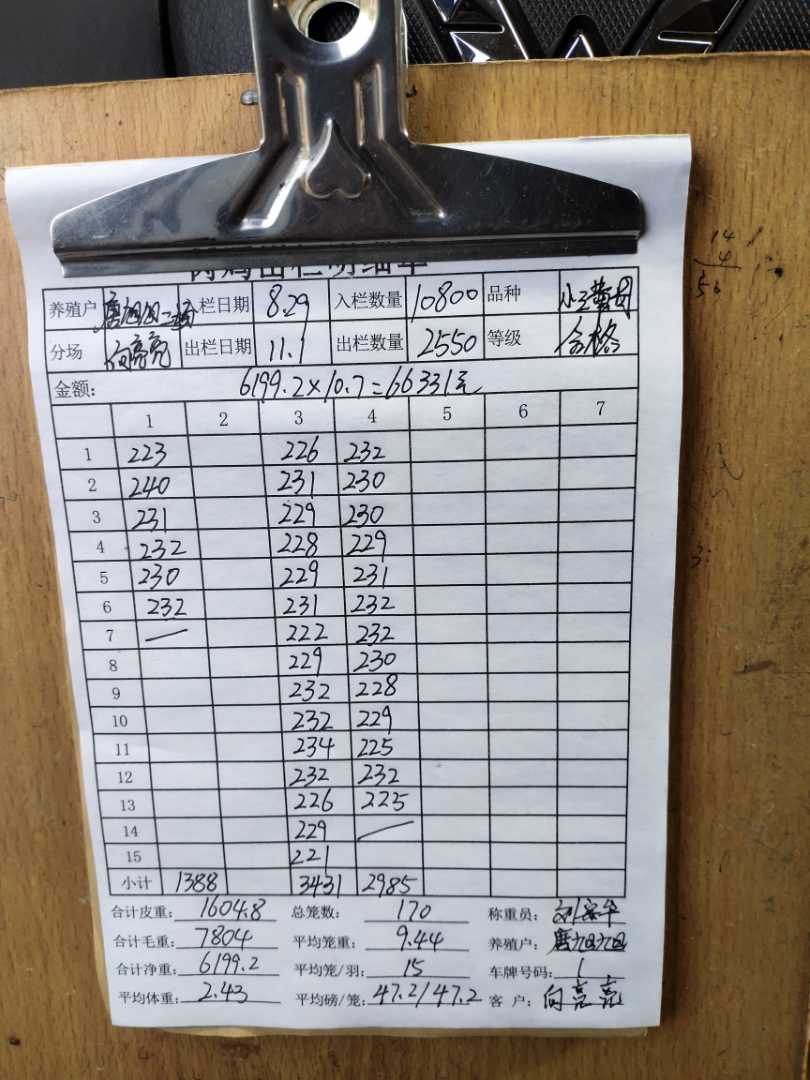 肉鸡出栏明细单
养殖户 唐旭旭二场 入栏日期 8.29 入栏数量 10800 品种
分场 向亮亮 出栏日期 11.1 出栏数量 2550 等级 合格
金额: 6199.2×10.7=66331元
1 2 3 4 5 6 7
1 223 226 232
2 240 231 230
3 231 229 230
4 232 228 229
5 230 229 231
6 232 231 232
7 — 222 232
8 229 230
9 232 228
10 232 229
11 234 225
12 232 232
13 226 225
14 229 —
15 221
小计 1388 3431 2985
合计皮重: 1604.8 总笼数: 170 称重员:
合计毛重: 7804 平均笼重: 9.44 养殖户: 唐旭旭
合计净重: 6199.2 平均笼/羽: 15 车牌号码: 1
平均体重: 2.43 平均磅/笼: 47.2/47.2 客 户: 向亮亮
14
4
56